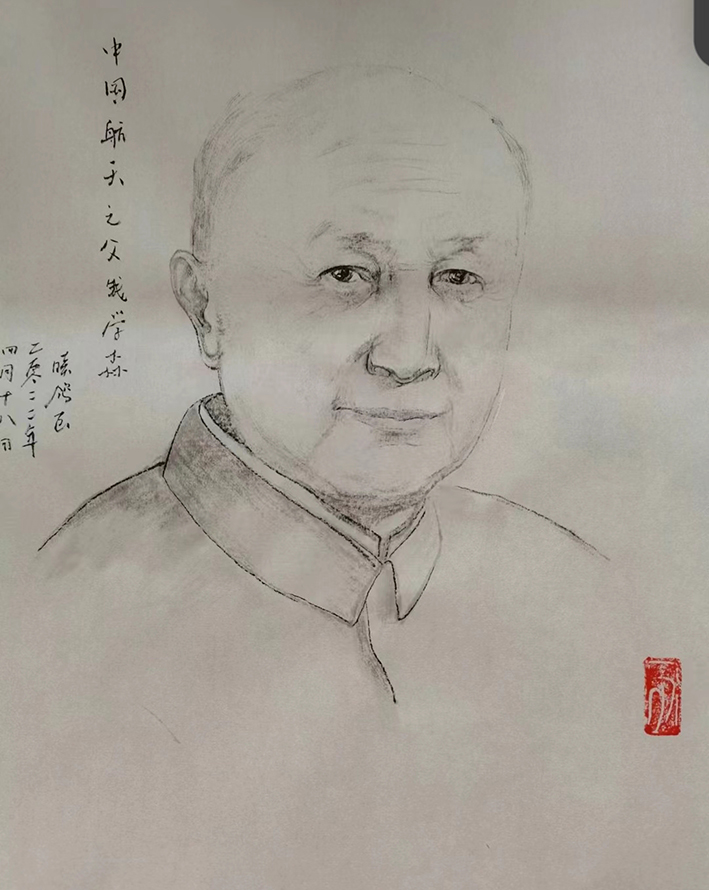 中国航天之父钱学森
二零二二年
四月十八日